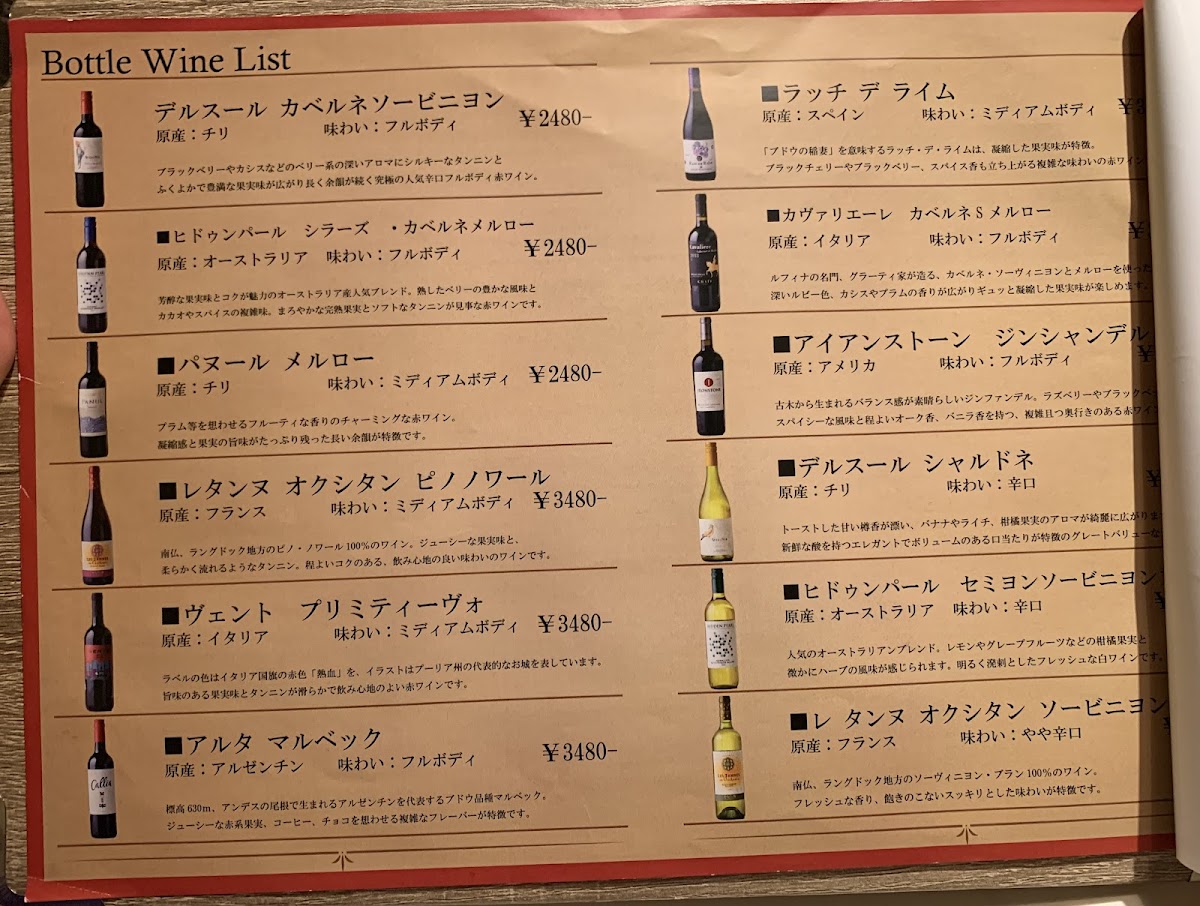 Bottle Wine List
デルスール カベルネソービニヨン
原産：チリ 味わい：フルボディ ￥2480-
ブラックベリーやカシスなどのベリー系の深いアロマにシルキーなタンニンと
ふくよかで豊満な果実味が広がり長く余韻が続く究極の人気辛口フルボディ赤ワイン。
■ヒドゥンパール シラーズ ・カベルネメルロー
原産：オーストラリア 味わい：フルボディ ￥2480-
芳醇な果実味とコクが魅力のオーストラリア産人気ブレンド。熟したベリーの豊かな風味と
カカオやスパイスの複雑味。まろやかな完熟果実とソフトなタンニンが見事な赤ワインです。
■パヌール メルロー
原産：チリ 味わい：ミディアムボディ ￥2480-
プラム等を思わせるフルーティな香りのチャーミングな赤ワイン。
凝縮感と果実の旨味がたっぷり残った長い余韻が特徴です。
■レタンヌ オクシタン ピノノワール
原産：フランス 味わい：ミディアムボディ ￥3480-
南仏、ラングドック地方のピノ・ノワール100%のワイン。ジューシーな果実味と、
柔らかく流れるようなタンニン。程よいコクのある、飲み心地の良い味わいのワインです。
■ヴェント プリミティーヴォ
原産：イタリア 味わい：ミディアムボディ ￥3480-
ラベルの色はイタリア国旗の赤色「熱血」を、イラストはプーリア州の代表的なお城を表しています。
旨味のある果実味とタンニンが滑らかで飲み心地のよい赤ワインです。
■アルタ マルベック
原産：アルゼンチン 味わい：フルボディ ￥3480-
標高630m、アンデスの尾根で生まれるアルゼンチンを代表するブドウ品種マルベック。
ジューシーな赤系果実、コーヒー、チョコを思わせる複雑なフレーバーが特徴です。
■ラッチ デ ライム
原産：スペイン 味わい：ミディアムボディ ￥3
「ブドウの稲妻」を意味するラッチ・デ・ライムは、凝縮した果実味が特徴。
ブラックチェリーやブラックベリー、スパイス香も立ち上がる複雑な味わいの赤ワイン
■カヴァリエーレ カベルネS メルロー
原産：イタリア 味わい：フルボディ ￥
ルフィナの名門、グラーティ家が造る、カベルネ・ソーヴィニヨンとメルローを使った
深いルビー色、カシスやプラムの香りが広がりギュッと凝縮した果実味が楽しめます。
■アイアンストーン ジンシャンデル
原産：アメリカ 味わい：フルボディ ￥
古木から生まれるバランス感が素晴らしいジンファンデル。ラズベリーやブラックベ
スパイシーな風味と程よいオーク香、バニラ香を持つ、複雑且つ奥行きのある赤ワイン
■デルスール シャルドネ
原産：チリ 味わい：辛口 ￥
トーストした甘い樽香が漂い、バナナやライチ、柑橘果実のアロマが綺麗に広がりま
新鮮な酸を持つエレガントでボリュームのある口当たりが特徴のグレートバリューな
■ヒドゥンパール セミヨンソービニヨン
原産：オーストラリア 味わい：辛口 ￥
人気のオーストラリアンブレンド。レモンやグレープフルーツなどの柑橘果実と
微かにハーブの風味が感じられます。明るく溌剌としたフレッシュな白ワインです。
■レ タンヌ オクシタン ソービニヨン
原産：フランス 味わい：やや辛口
南仏、ラングドック地方のソーヴィニヨン・ブラン100%のワイン。
フレッシュな香り、飽きのこないスッキリとした味わいが特徴です。